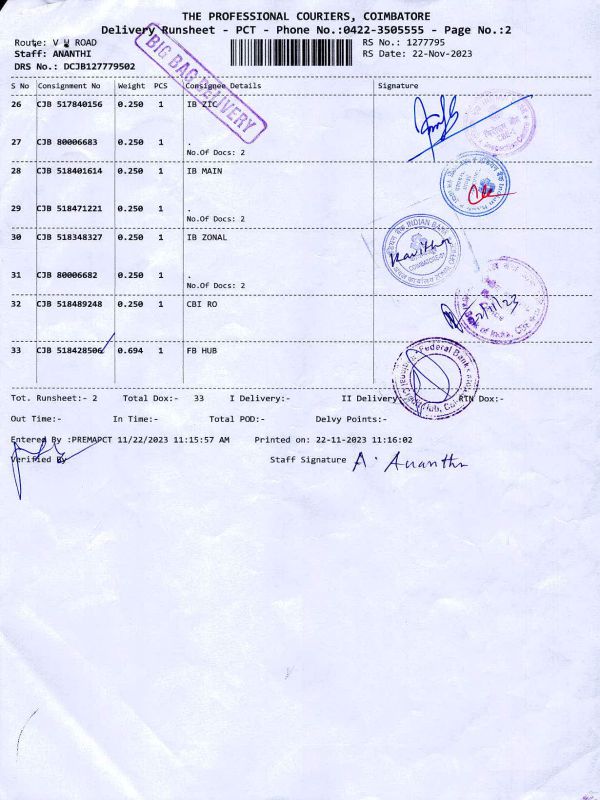 THE PROFESSIONAL COURIERS, COIMBATORE
Delivery Runsheet - PCT - Phone No.:0422-3505555 - Page No.:2
Route: V H ROAD
RS No.: 1277795
Staff: ANANTHI
RS Date: 22-Nov-2023
DRS No.: DCJB127779502
BIG BAG DELIVERY
S No Consignment No Weight PCS Consignee Details Signature
26 CJB 517840156 0.250 1 IB ZIC
27 CJB 80006683 0.250 1 .
No.Of Docs: 2
28 CJB 518401614 0.250 1 IB MAIN
29 CJB 518471221 0.250 1 .
No.Of Docs: 2
30 CJB 518348327 0.250 1 IB ZONAL
INDIAN BANK
Kavitha
COIMBATORE
31 CJB 80006682 0.250 1 .
No.Of Docs: 2
32 CJB 518489248 0.250 1 CBI RO
22/11/23
of India,
33 CJB 518428506 0.694 1 FB HUB
Federal Bank
Tot. Runsheet:- 2 Total Dox:- 33 I Delivery:- II Delivery:- RTN Dox:-
Out Time:- In Time:- Total POD:- Delvy Points:-
Entered By :PREMAPCT 11/22/2023 11:15:57 AM Printed on: 22-11-2023 11:16:02
Verified By
Staff Signature A. Ananthi